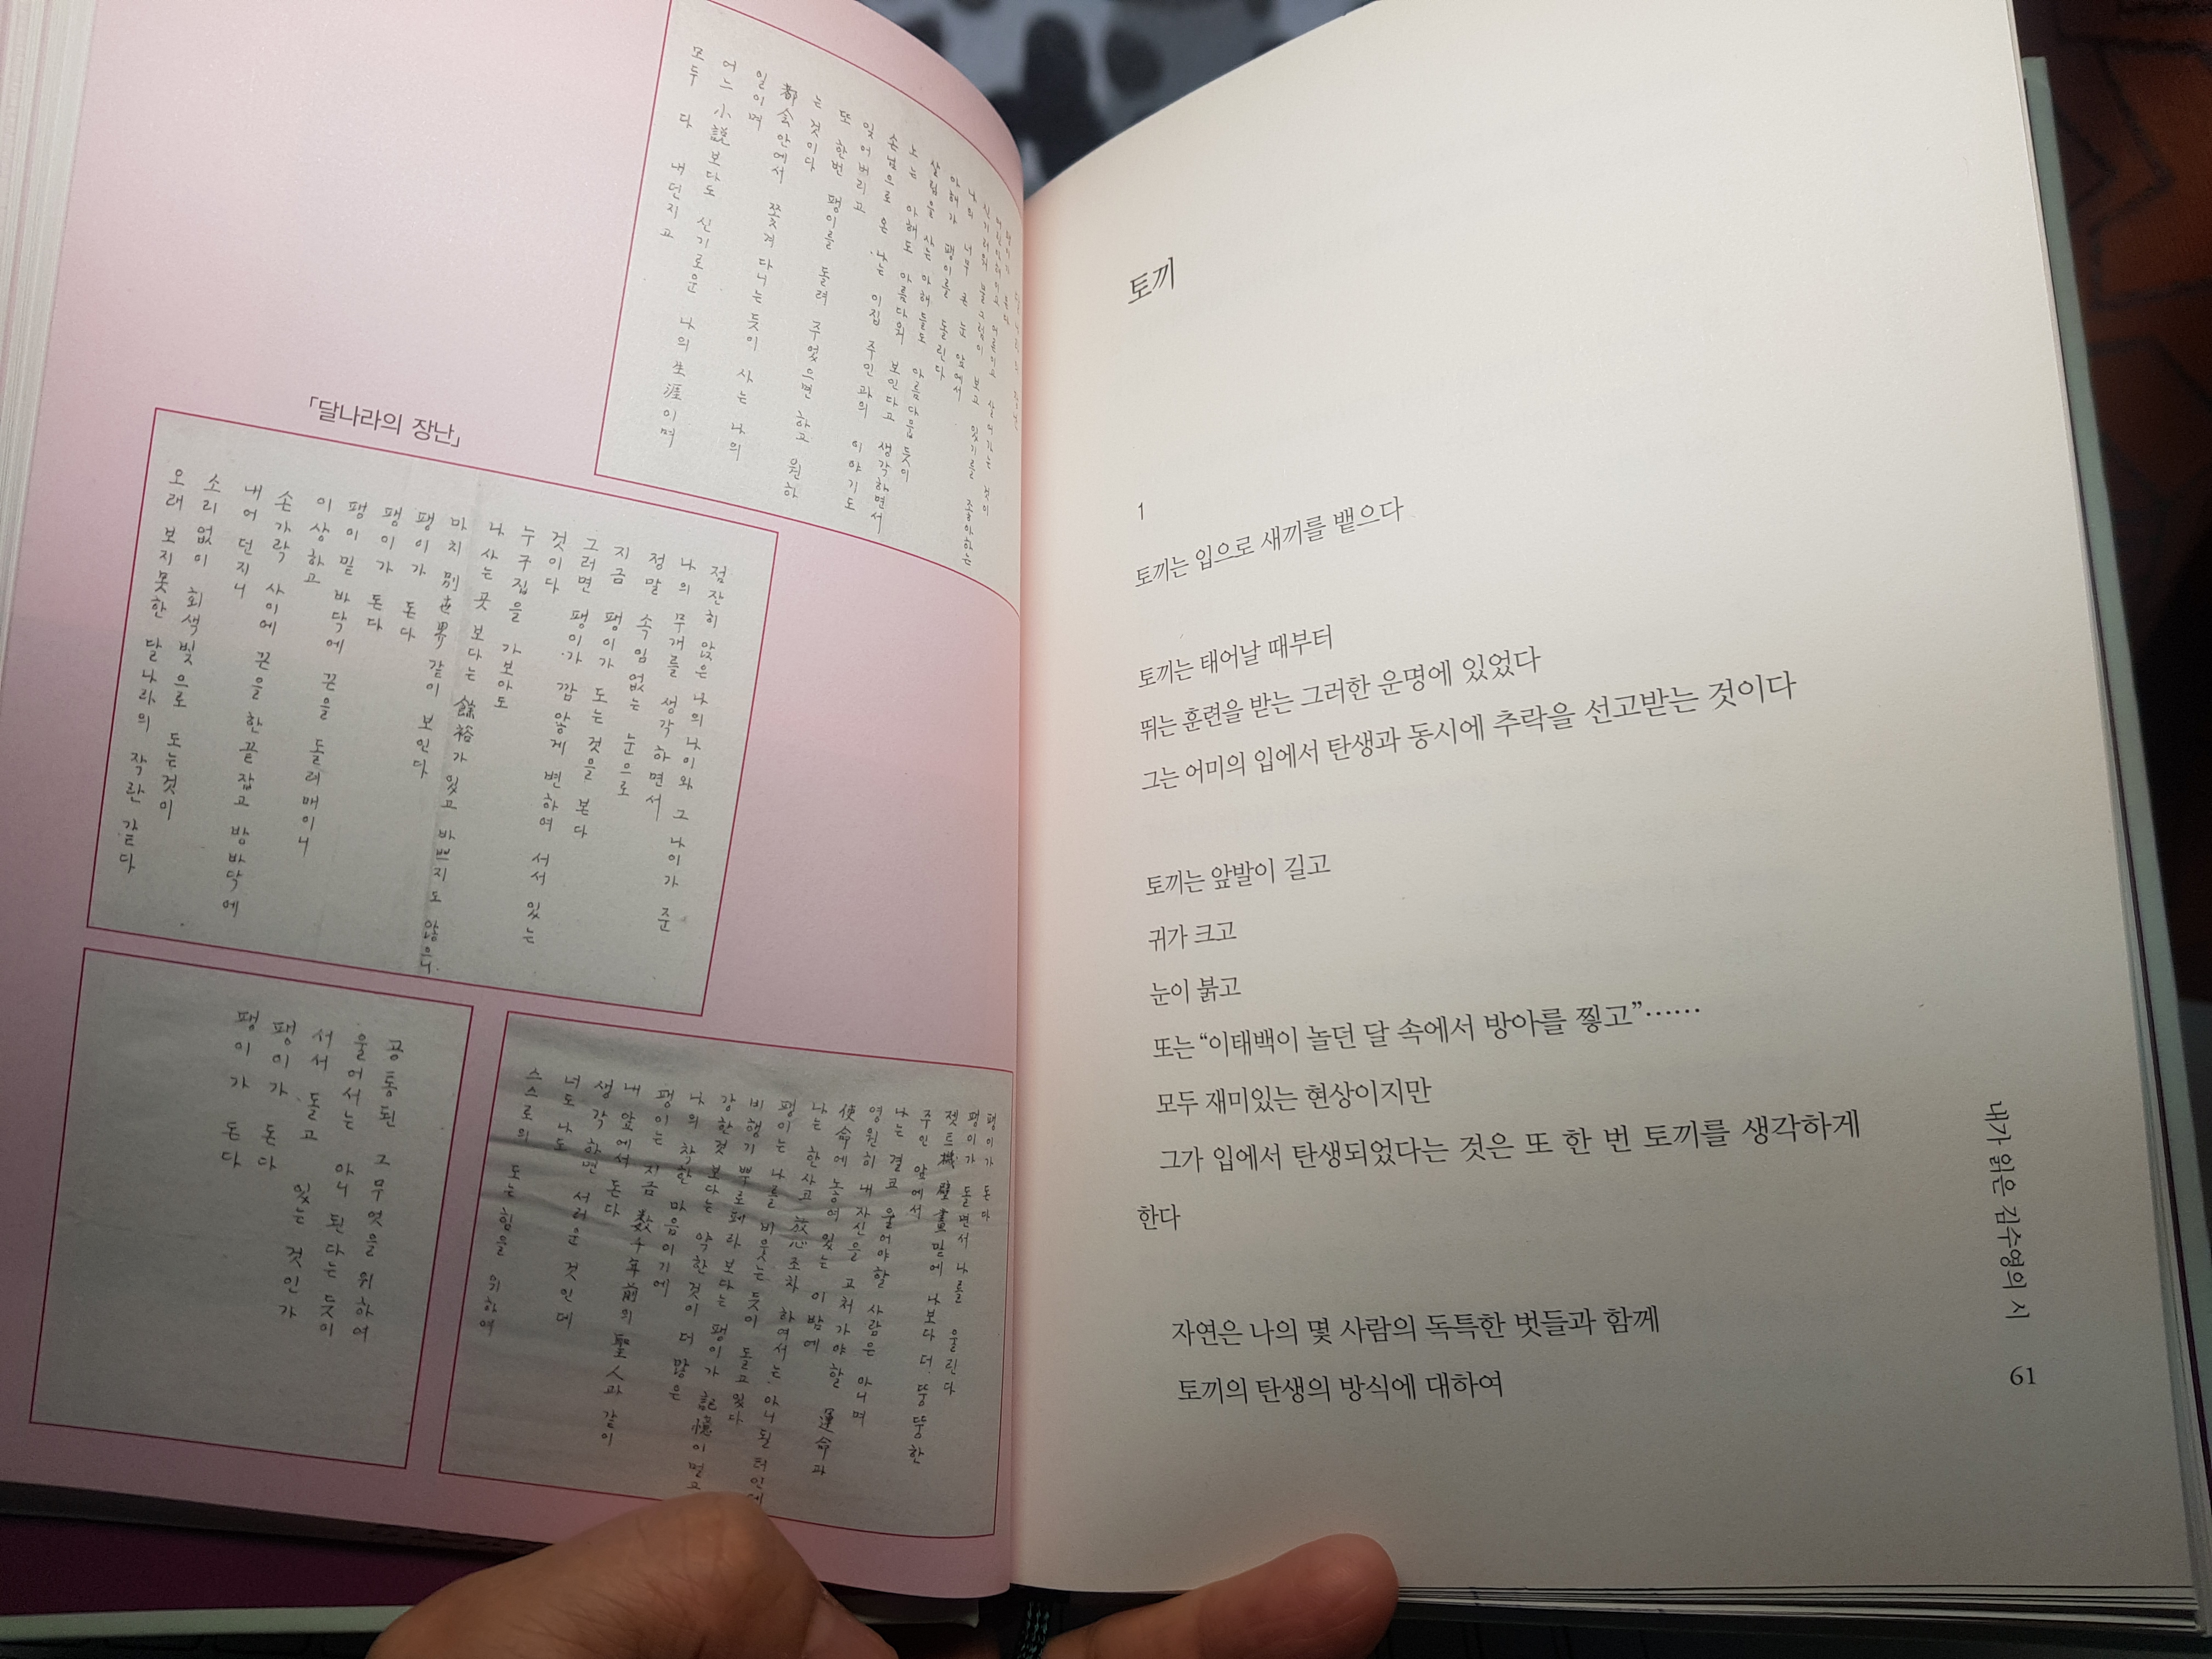 팽이가 돈다
어린아해이고 어른이고 살아가는 것이
신기로워 물끄러미 보고 있기를 좋아하는
나의 너무 큰 눈 앞에서
아해가 팽이를 돌린다
살림을 사는 아해들도 아름다웁듯이
노는 아해도 아름다워 보인다고 생각하면서
손님으로 온 나는 이집 주인과의 이야기도
잊어버리고
또 한번 팽이를 돌려 주었으면 하고 원하
는 것이다
都会안에서 쫓겨 다니는 듯이 사는 나의
일이며
어느 小說보다도 신기로운 나의 生涯이며
모두 다 내던지고
「달나라의 장난」
점잔히 앉은 나의 나이와 그 나이가 준
나의 무게를 생각하면서
정말 속임 없는 눈으로
지금 팽이가 도는 것을 본다
그러면 팽이가 깜앟게 변하여 서서 있는
것이다
누구집을 가보아도
나 사는 곳 보다는 餘裕가 있고 바쁘지도 않으니
마치 別世界같이 보인다
팽이가 돈다
팽이가 돈다
팽이 밑바닥에 끈을 돌려 매이니
이상하고
손가락 사이에 끈을 한끝 잡고 방바닥에
내어 던지니
소리없이 회색빛으로 도는것이
오래 보지못한 달나라의 작란 같다
팽이가 돈다
팽이가 돌면서 나를 울린다
젯트機 壁畫밑에 나보다 더 뚱뚱한
주인 앞에서
나는 결코 울어야할 사람은 아니며
영원히 내 자신을 고쳐가야할 運命과
使命에 놓여있는 이 밤에
나는 한사코 放心조차 하여서는 아니될 터인데
팽이는 나를 비웃는 듯이 돌고있다
비행기 뿌로페라 보다는 팽이가 記憶이 멀고
강한것 보다는 약한것이 더 많은
나의 착한 마음이기에
팽이는 지금 数千年前의 聖人과 같이
내 앞에서 돈다
생각하면 서러운 것인데
너도 나도
스스로의 도는 힘을 위하여
공통된 그무엇을 위하여
울어서는 아니된다는 듯이
서서 돌고 있는 것인가
팽이가 돈다
팽이가 돈다
토끼
1
토끼는 입으로 새끼를 뱉으다
토끼는 태어날 때부터
뛰는 훈련을 받는 그러한 운명에 있었다
그는 어미의 입에서 탄생과 동시에 추락을 선고받는 것이다
토끼는 앞발이 길고
귀가 크고
눈이 붉고
또는 “이태백이 놀던 달 속에서 방아를 찧고”……
모두 재미있는 현상이지만
그가 입에서 탄생되었다는 것은 또 한 번 토끼를 생각하게
한다
자연은 나의 몇 사람의 독특한 벗들과 함께
토끼의 탄생의 방식에 대하여
내가 읽은 김수영의 시
61